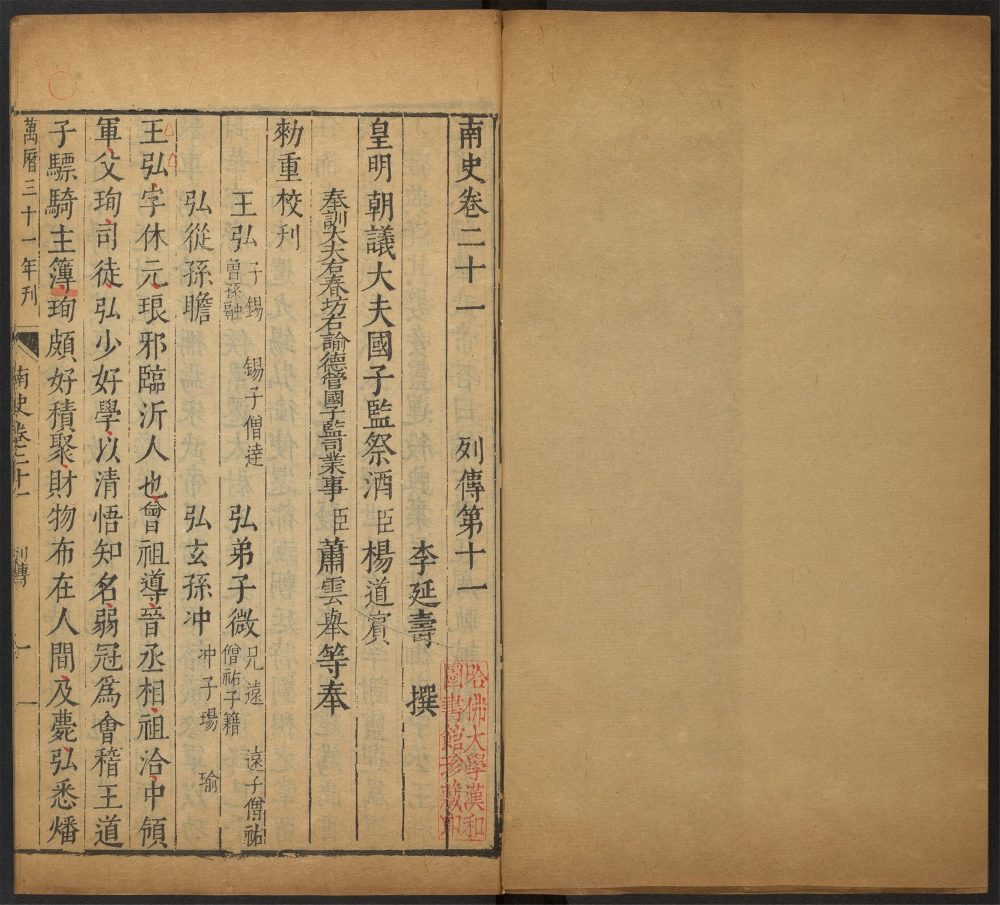 南史卷二十一　列傳第十一
李延壽　撰
皇明朝議大夫國子監祭酒臣楊道賓
奉訓大夫右春坊右諭德管國子監司業事臣蕭雲舉等奉
勑重校刋
王弘　子錫　錫子僧達　曾孫融　弘弟子微　兄遠　遠子僧祐　僧祐子籍
弘從孫瞻　弘玄孫冲　冲子瑒　瑜
王弘字休元琅邪臨沂人也曾祖導晉丞相祖洽中領
軍父珣司徒弘少好學以清悟知名弱冠爲會稽王道
子驃騎主簿珣頗好積聚財物布在人間及薨弘悉燔
萬曆三十一年刋
南史卷二十一　列傳　一
哈佛大學漢和
圖書館珍藏印